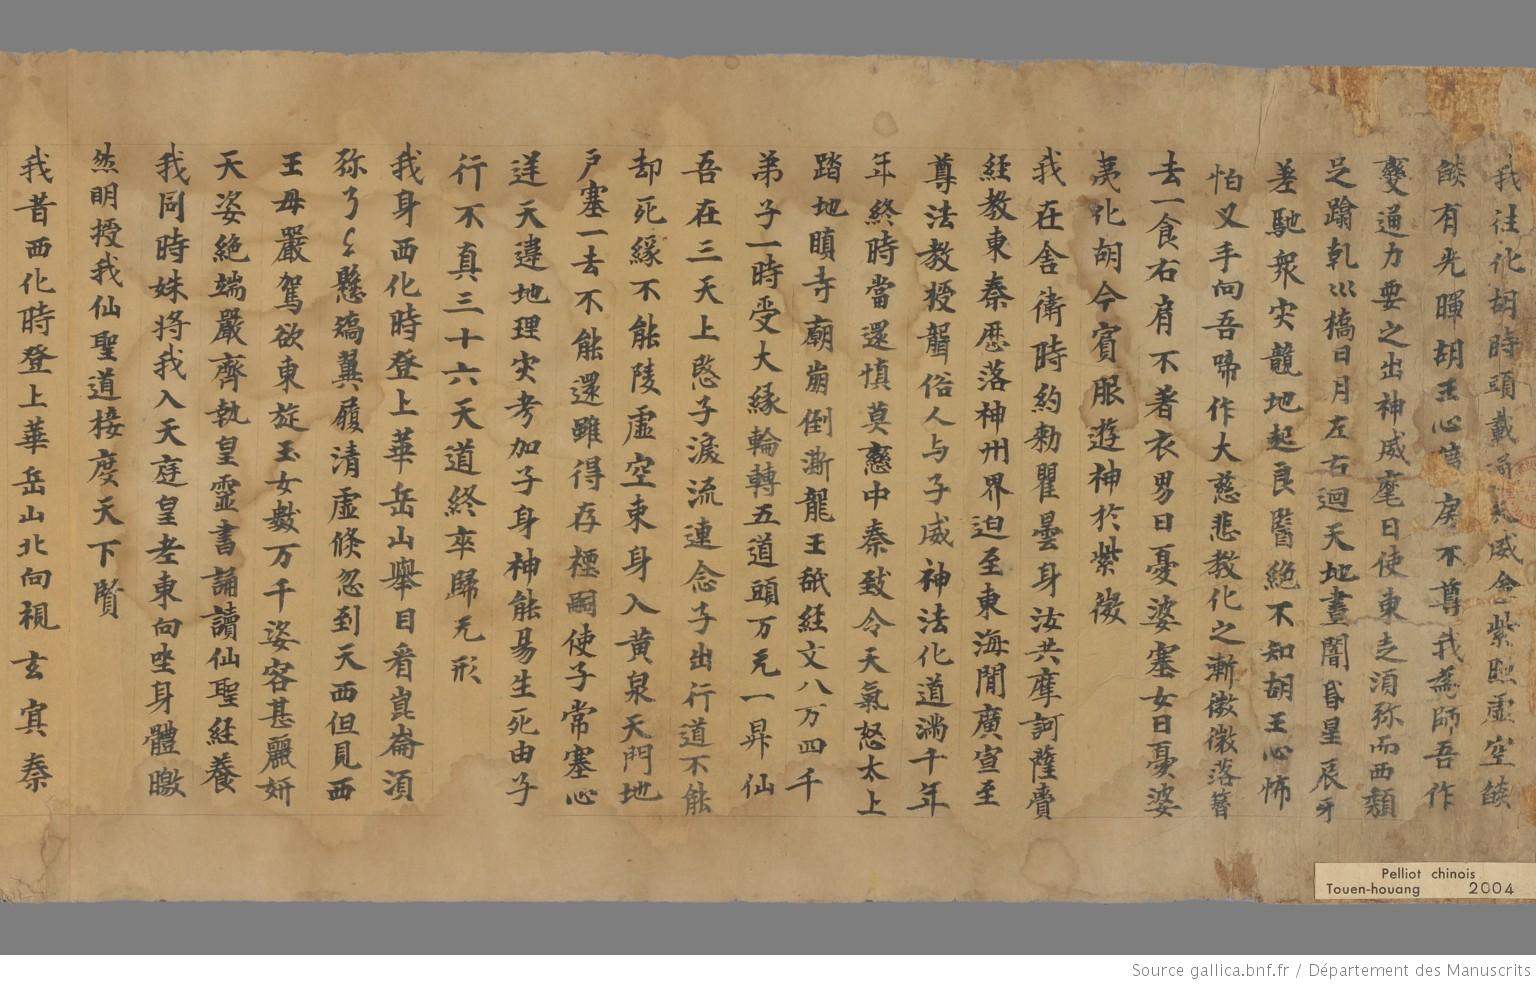 我往化胡時頭戴 威 紫 虛空燄
燄有光暉胡王心 不尊我為師吾作
變通力要之出神威麾日使東走須弥而西頽
足蹹乹巛橋日月左右迴天地晝闇昏星辰牙
差馳衆灾競地起良醫絕不知胡王心怖
怕叉手向吾啼作大慈悲教化之漸徽徽落簪
去一食右肩不著衣男曰憂婆塞女曰憂婆
夷化胡今賓服遊神於紫徽
我在舍衛時約勑瞿曇身汝共摩訶薩賷
経教東秦歷落神州界迫至東海間廣宣至
尊法教授聾俗人与子威神法化道滿千年
年終時當還慎莫戀中秦致令天氣怒太上
踏地瞋寺廟崩倒澌龍王舐経文八万四千
弟子一時受大緣輪轉五道頭万无一昇仙
吾在三天上愍子淚流連念子出行道不能
却死緣不能陵虛空束身入黄泉天門地
戸塞一去不能還雖得存禋嗣使子常塞心
逆天違地理灾考加子身神能易生死由子
行不真三十六天道終卒歸无形
我身西化時登上華岳山舉目看崑崙湏
弥了了懸矯翼履清虛倏忽到天西但見西
王母嚴駕欲東旋玉女數万千姿容甚麗妍
天姿絕端嚴齊執皇靈書誦讀仙聖経養
我同時姝將我入天庭皇老東向坐身體曒
然明授我仙聖道接度天下賢
我昔西化時登上華岳山北向視玄冥秦
Pelliot chinois
Touen-houang 2004
Source gallica.bnf.fr / Département des Manuscrits